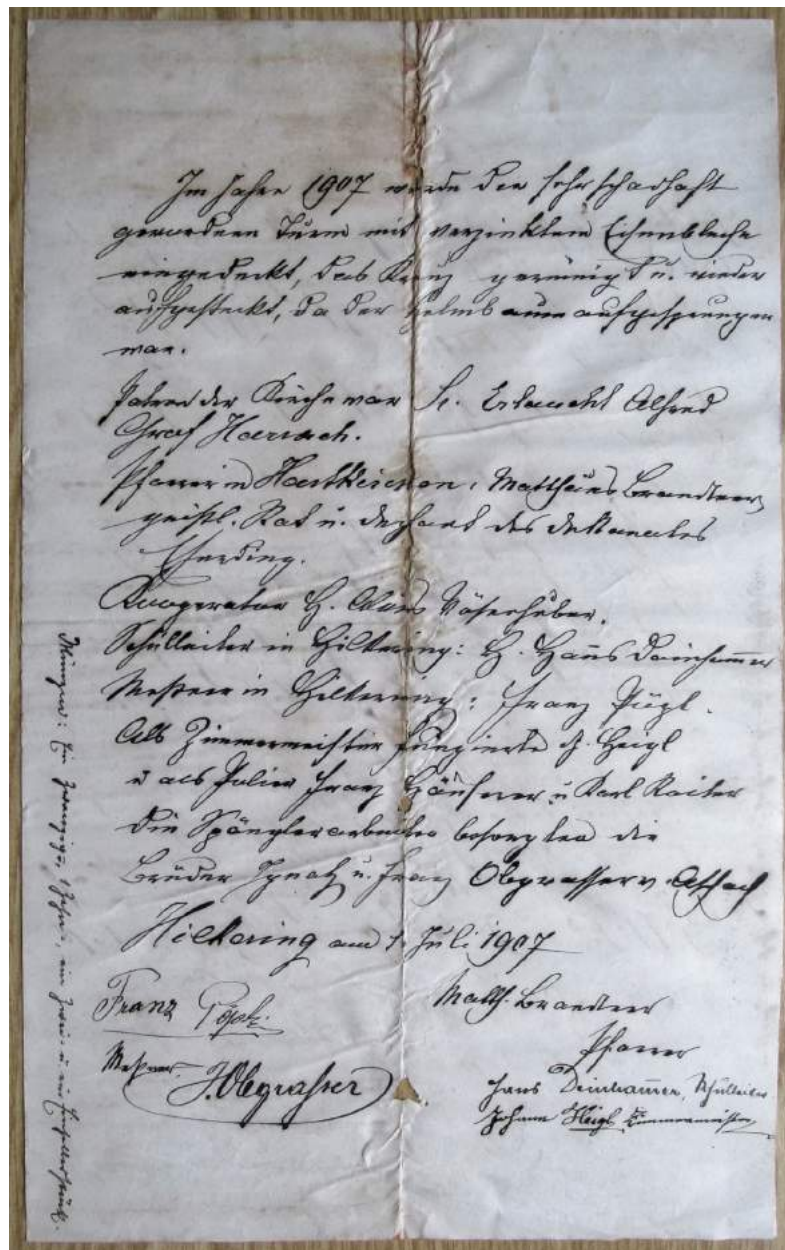 Im Jahre 1907 wurde der sehr schadhaft
gewordene Turm mit verzinktem Eisenbleche
eingedeckt, das Kreuz gereinigt u. wieder
aufgesteckt, da der Helmbaum aufgesprungen
war.
Patron der Kirche war Sr. Erlaucht Alfred
Graf Harrach.
Pfarrer in Hartkirchen: Matthäus Brandtner
geistl. Rat u. Dechant des Dekanates
Eferding.
Kooperator H. Alois
Schulleiter in Hilkering: H. Hans Dainhammer
Meßner in Hilkering: Franz
Als Zimmermeister fungierte J. Heigl
u als Polier Franz u. Karl Raiter
die Spänglerarbeiten besorgten die
Brüder Ignatz u. Franz Obgrasser v. Aschach
Hilkering am 1. Juli 1907
Franz
Meßner.
J. Obgrasser
Matth. Brandtner
Pfarrer
Hans Deinhammer, Schulleiter
Johann Heigl Zimmermeister
Münzen: Ein Zwanzig-, 1 Zehn-, ein Zwei- u ein Einhellerstück.